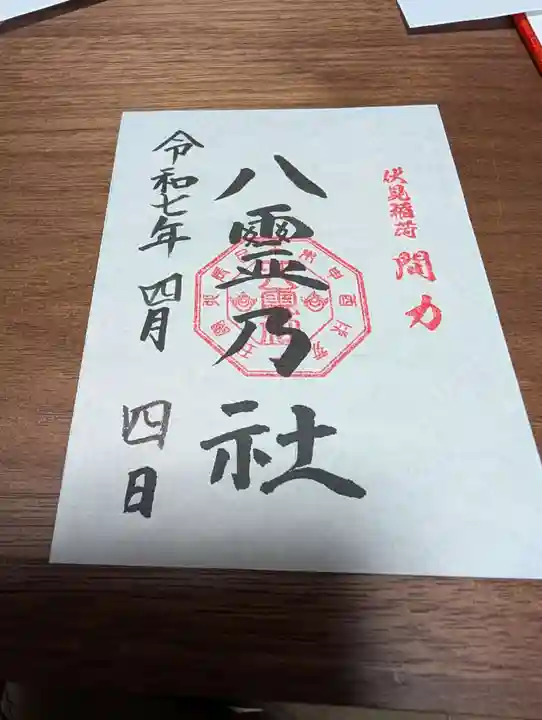 伏見稲荷 間力
八靈乃社
令和七年 四月 四日